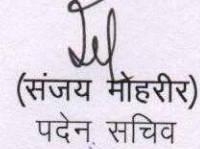 (संजय मोहरीर)
पदेन सचिव